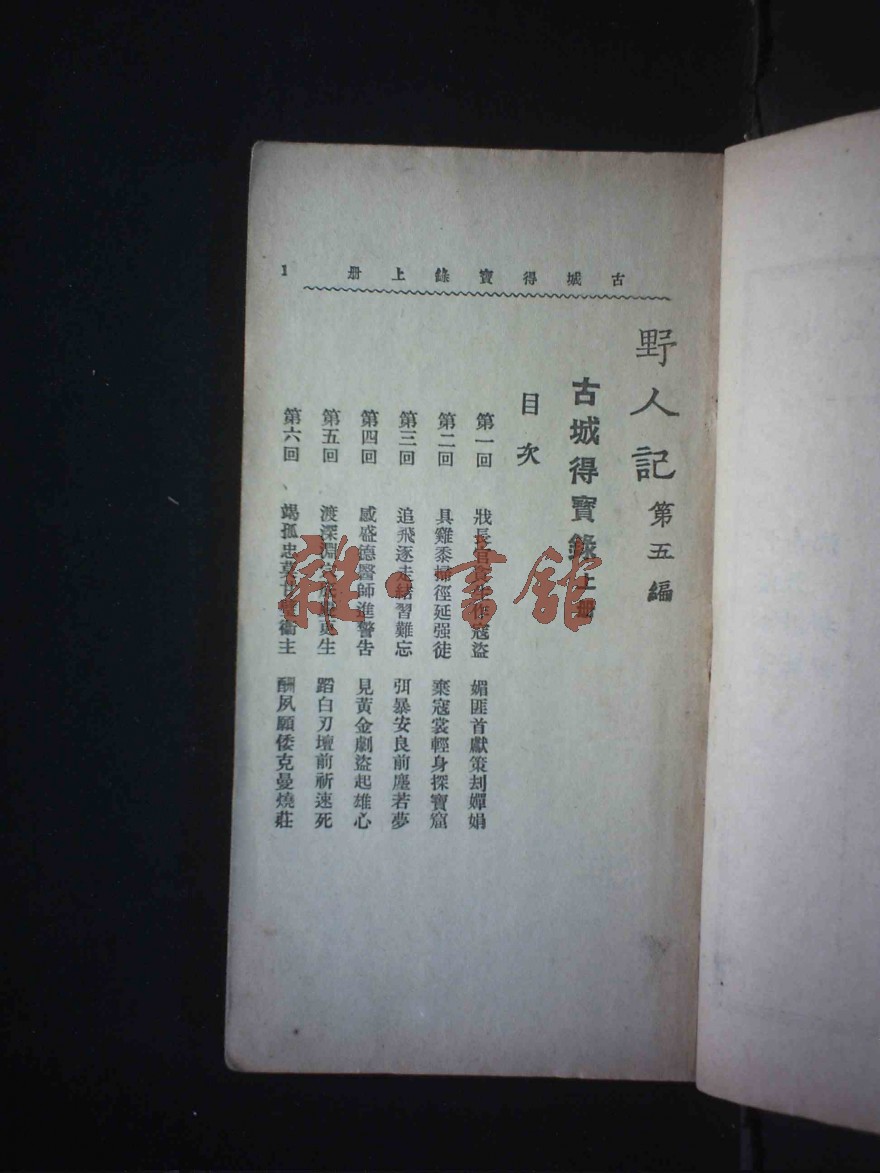 古城得寶錄上册 1
野人記 第五編
古城得寶錄 上册
目次
第一回 戕長官 作寇盜 媚匪首獻策刦嬋娟
第二回 具雞黍掃徑延强徒 棄寇裳輕身探寶窟
第三回 追飛逐走 習難忘 弭暴安良前塵若夢
第四回 感盛德醫師進警告 見黃金劇盜起雄心
第五回 渡深淵 更生 蹈白刃壇前祈速死
第六回 竭孤忠莫 衞主 酬夙願倭克曼燒莊
雜·書館